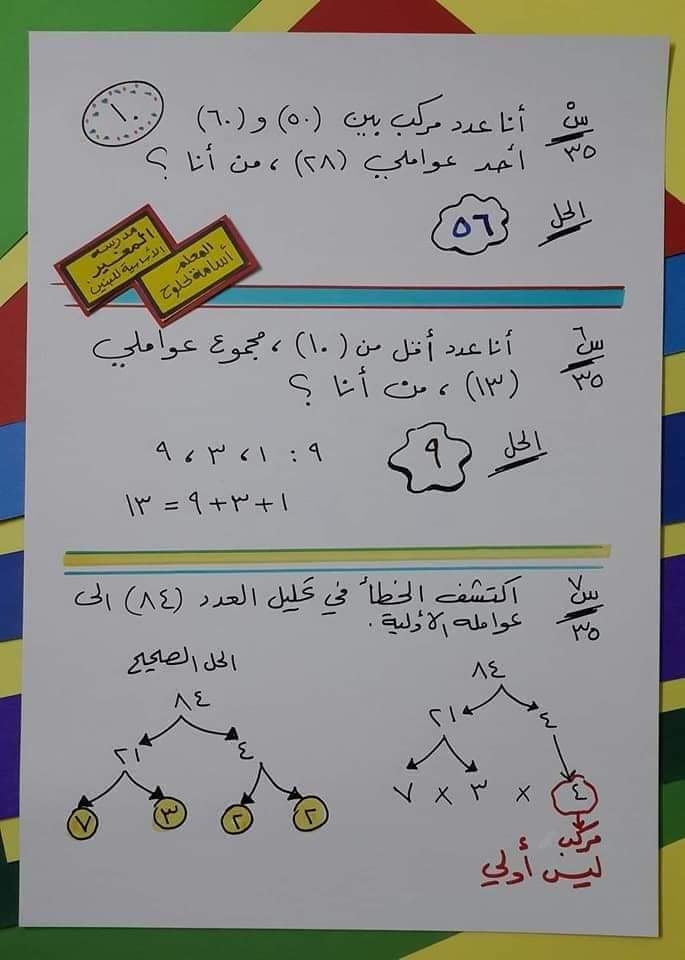 ١٠
س٥/٣٥ أنا عدد مركب بين (٥٠) و (٦٠)
أحد عواملي (٢٨) ، من أنا ؟
الحل ٥٦
مدرسة
المغير
الأساسية للبنين
المعلم
أسامة لحلوح
س٦/٣٥ أنا عدد أقل من (١٠) ، مجموع عواملي
(١٣) ، من أنا ؟
الحل ٩
٩ : ١ ، ٣ ، ٩
١ + ٣ + ٩ = ١٣
س٧/٣٥ اكتشف الخطأ في تحليل العدد (٨٤) الى
عوامله الأولية .
٨٤
٤ ٢١
٤ × ٣ × ٧
مركب
ليس أولي
الحل الصحيح
٨٤
٤ ٢١
٢ ٢ ٣ ٧